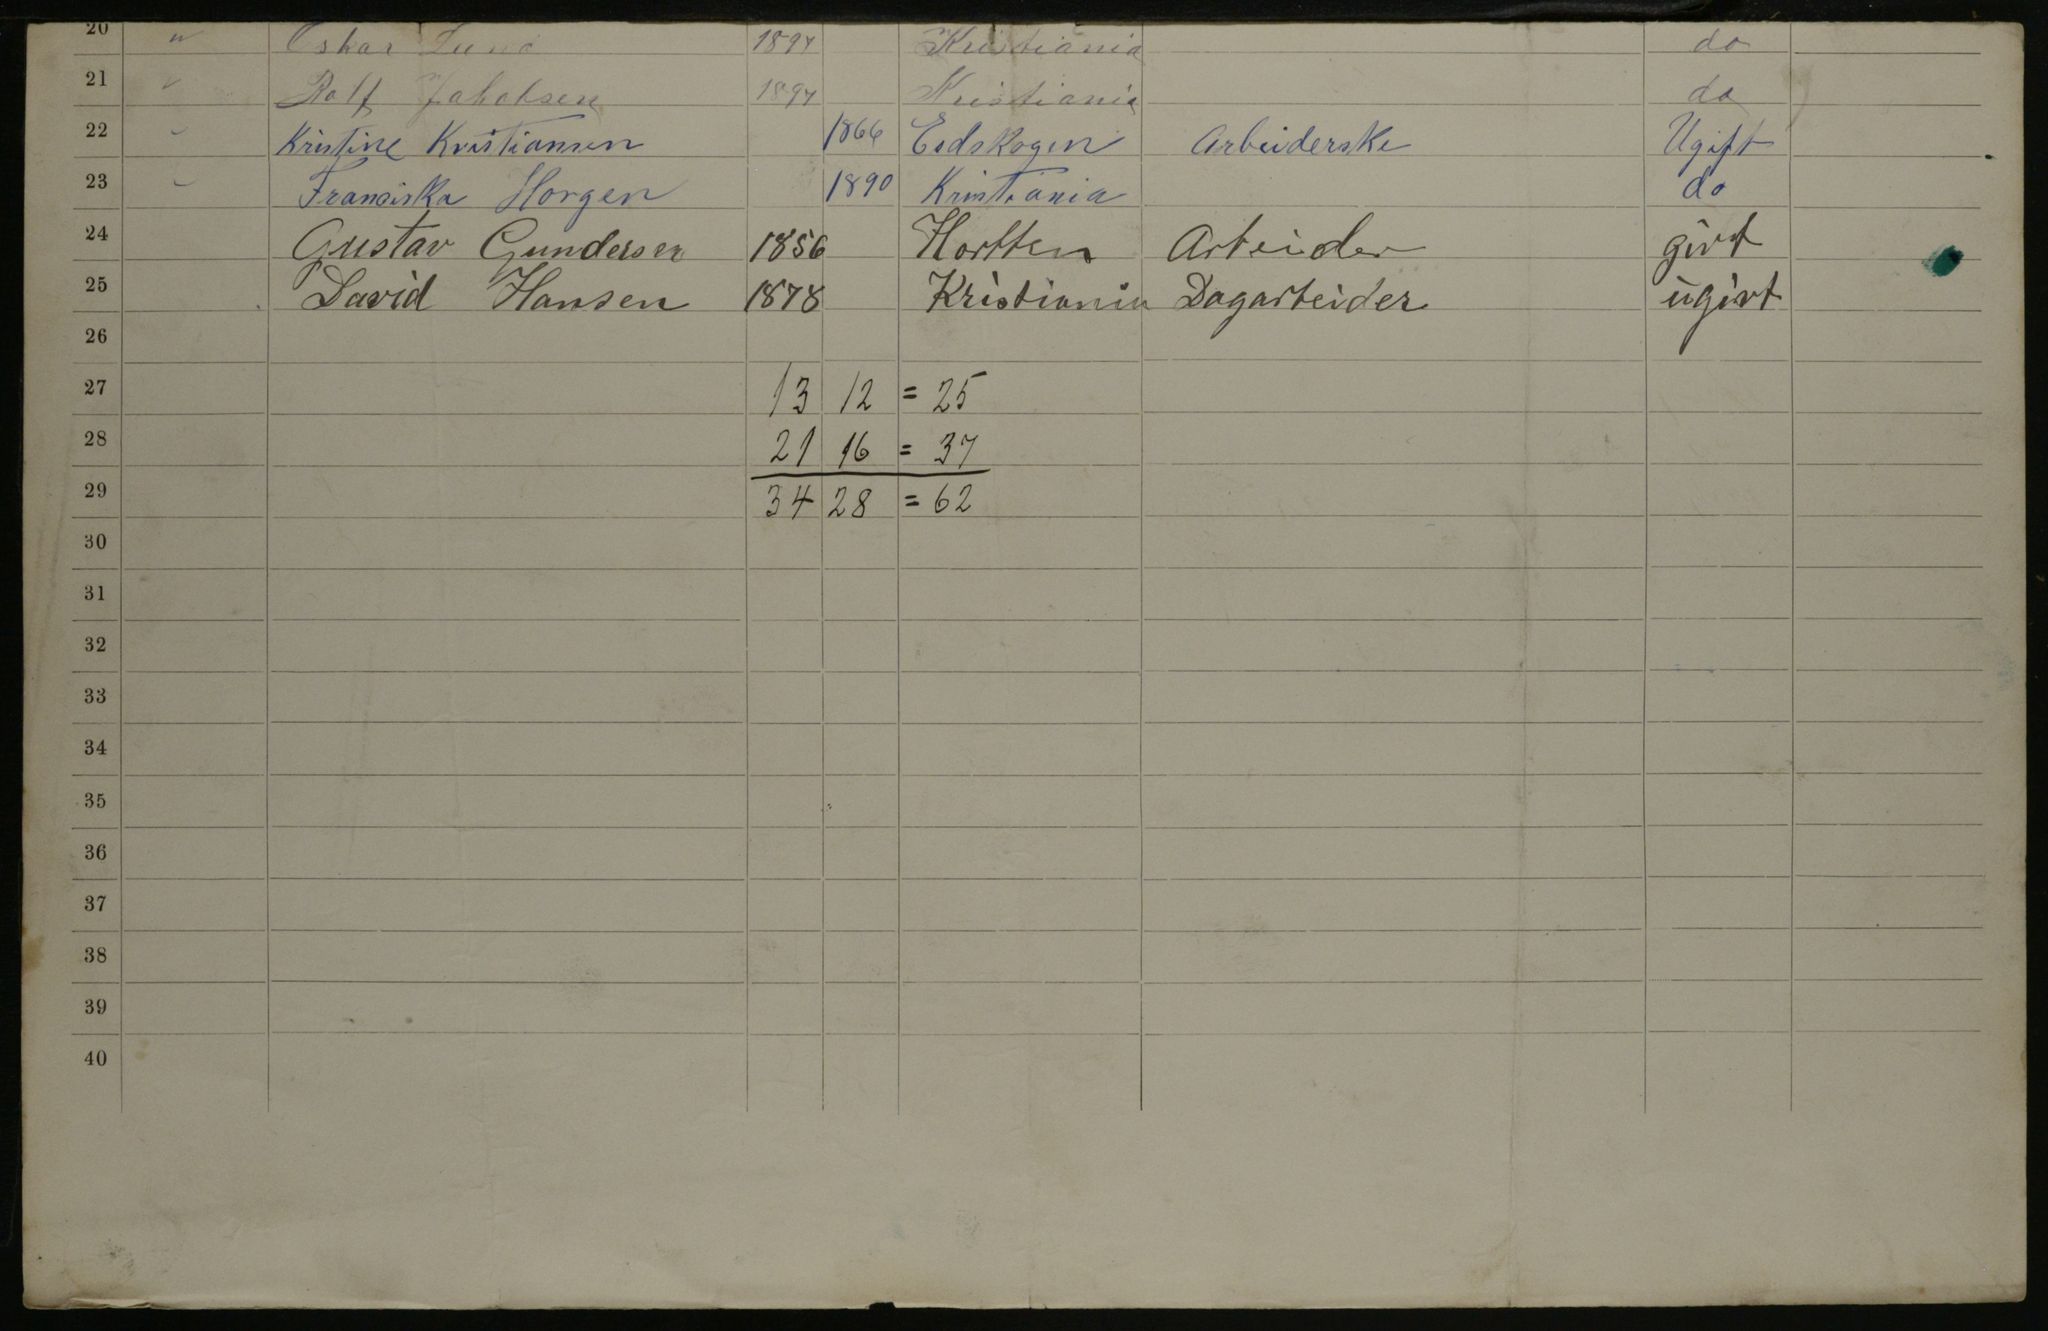 20 " Oskar Lund 1897 Kristiania do
21 " Rolf Jakobsen 1897 Kristiania do
22 " Kristine Kristiansen 1866 Eidskogen Arbeiderske Ugift
23 " Fransiska Horgen 1890 Kristiania do
24 Gustav Gundersen 1856 Hortten Arbeider givt
25 David Hansen 1878 Kristiania Dagarbeider ugivt
26
27 13 12 = 25
28 21 16 = 37
29 34 28 = 62
30
31
32
33
34
35
36
37
38
39
40